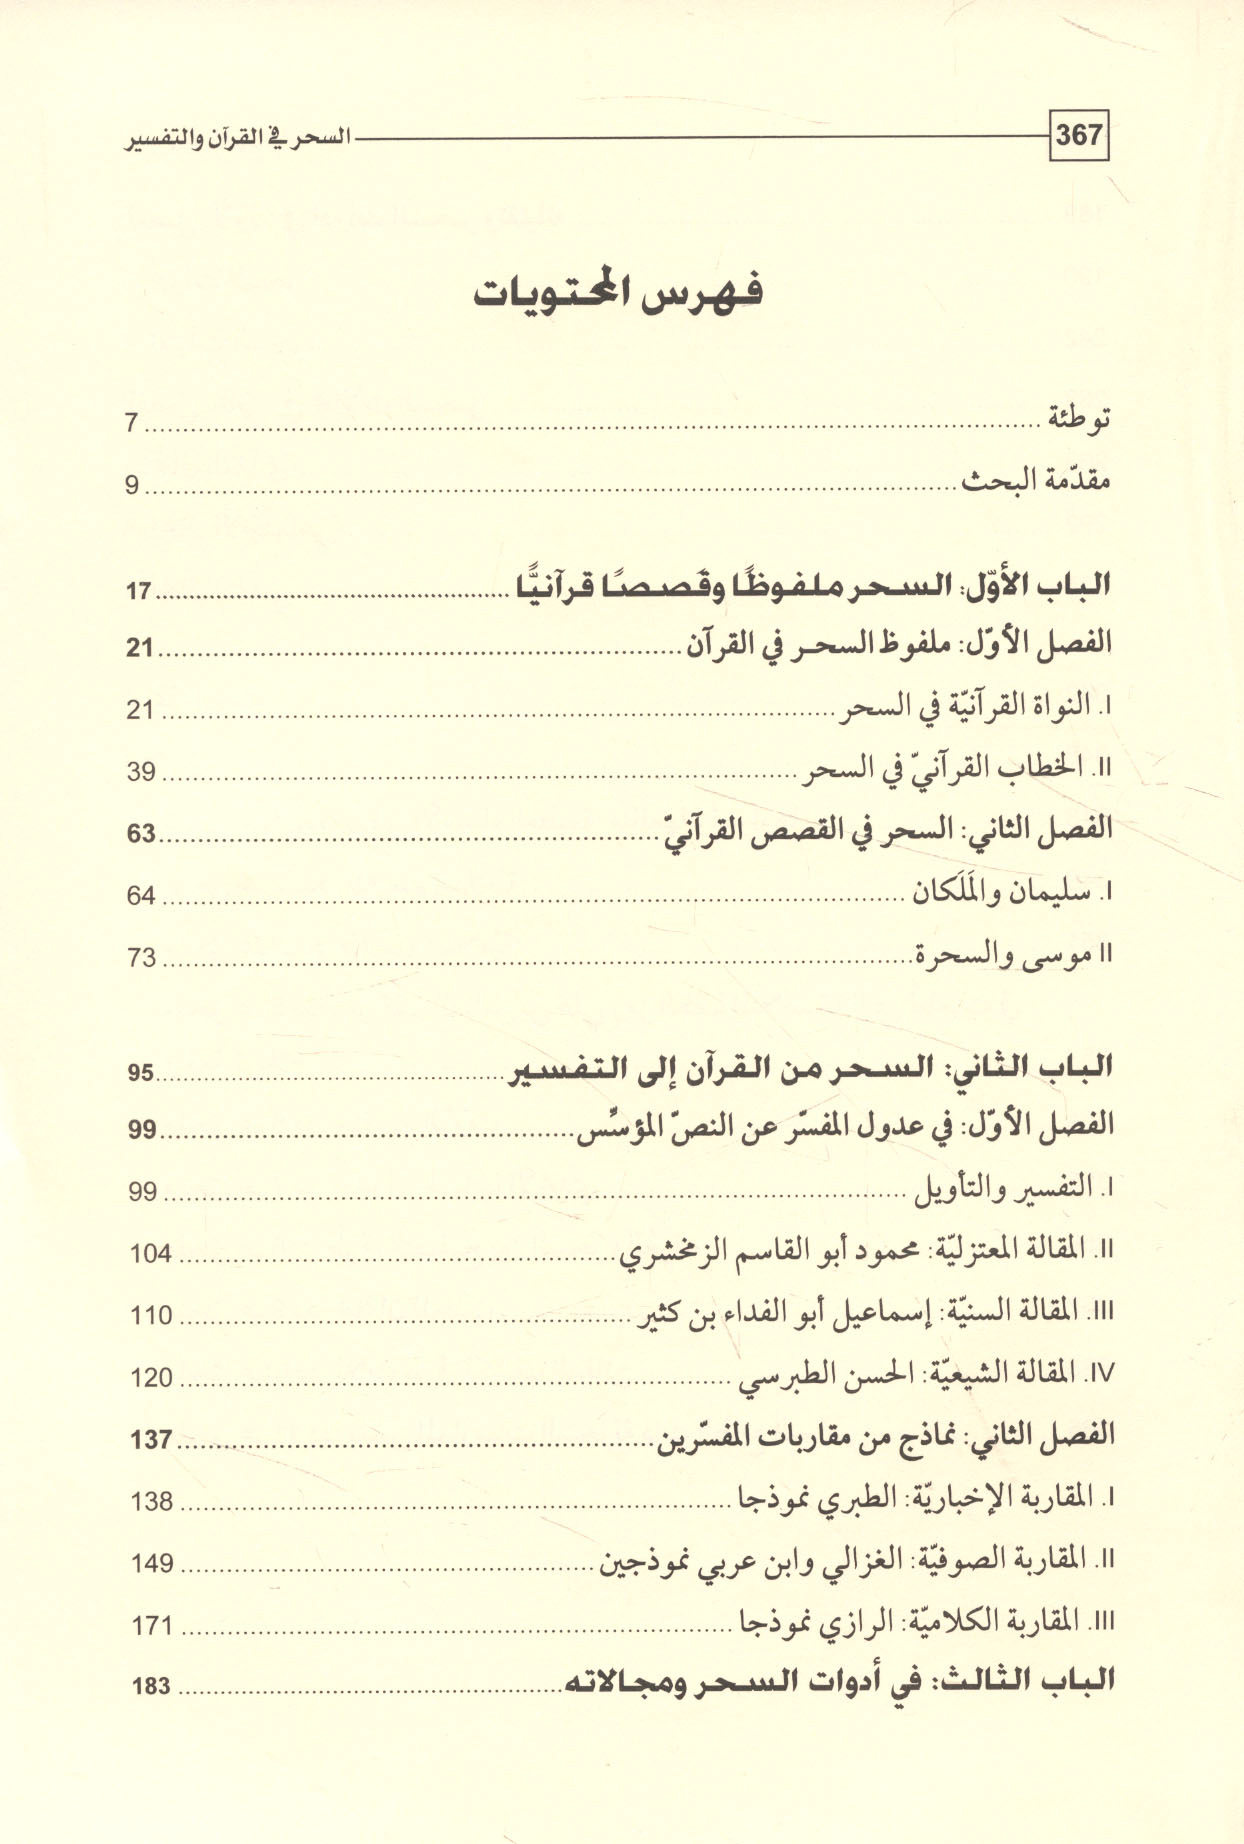 367 السحر في القرآن والتفسير
فهرس المحتويات
توطئة ........ 7
مقدّمة البحث ........ 9
الباب الأوّل: السحر ملفوظًا وقَصصًا قرآنيًّا ........ 17
الفصل الأوّل: ملفوظ السحر في القرآن ........ 21
I. النواة القرآنيّة في السحر ........ 21
II. الخطاب القرآنيّ في السحر ........ 39
الفصل الثاني: السحر في القصص القرآنيّ ........ 63
I. سليمان والمَلَكان ........ 64
II موسى والسحرة ........ 73
الباب الثاني: السحر من القرآن إلى التفسير ........ 95
الفصل الأوّل: في عدول المفسّر عن النصّ المؤسِّس ........ 99
I. التفسير والتأويل ........ 99
II. المقالة المعتزليّة: محمود أبو القاسم الزمخشري ........ 104
III. المقالة السنيّة: إسماعيل أبو الفداء بن كثير ........ 110
IV. المقالة الشيعيّة: الحسن الطبرسي ........ 120
الفصل الثاني: نماذج من مقاربات المفسّرين ........ 137
I. المقاربة الإخباريّة: الطبري نموذجا ........ 138
II. المقاربة الصوفيّة: الغزالي وابن عربي نموذجين ........ 149
III. المقاربة الكلاميّة: الرازي نموذجا ........ 171
الباب الثالث: في أدوات السحر ومجالاته ........ 183